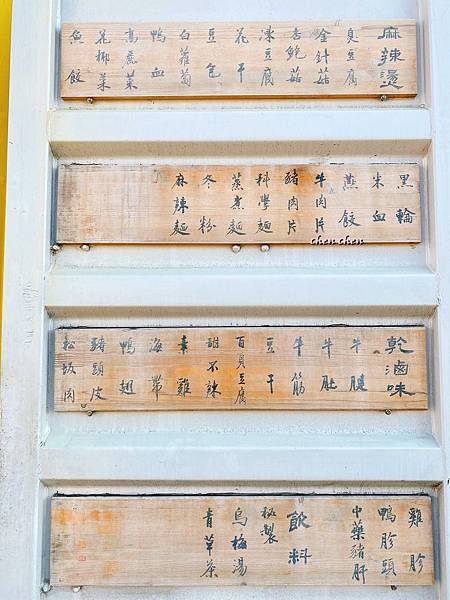 麻辣燙
臭豆腐
金針菇
杏鮑菇
凍豆腐
花干
豆包
白蘿蔔
鴨血
高麗菜
花椰菜
魚餃
黑輪
米血
燕餃
牛肉片
豬肉片
科學麵
蒸煮麵
冬粉
麻辣麵
shan shan
乾滷味
牛腱
牛肚
牛筋
豆干
百頁豆腐
甜不辣
素雞
海帶
鴨翅
豬頭皮
松坂肉
雞胗
鴨胗頭
中藥豬肝
飲料
秘製
烏梅湯
青草茶